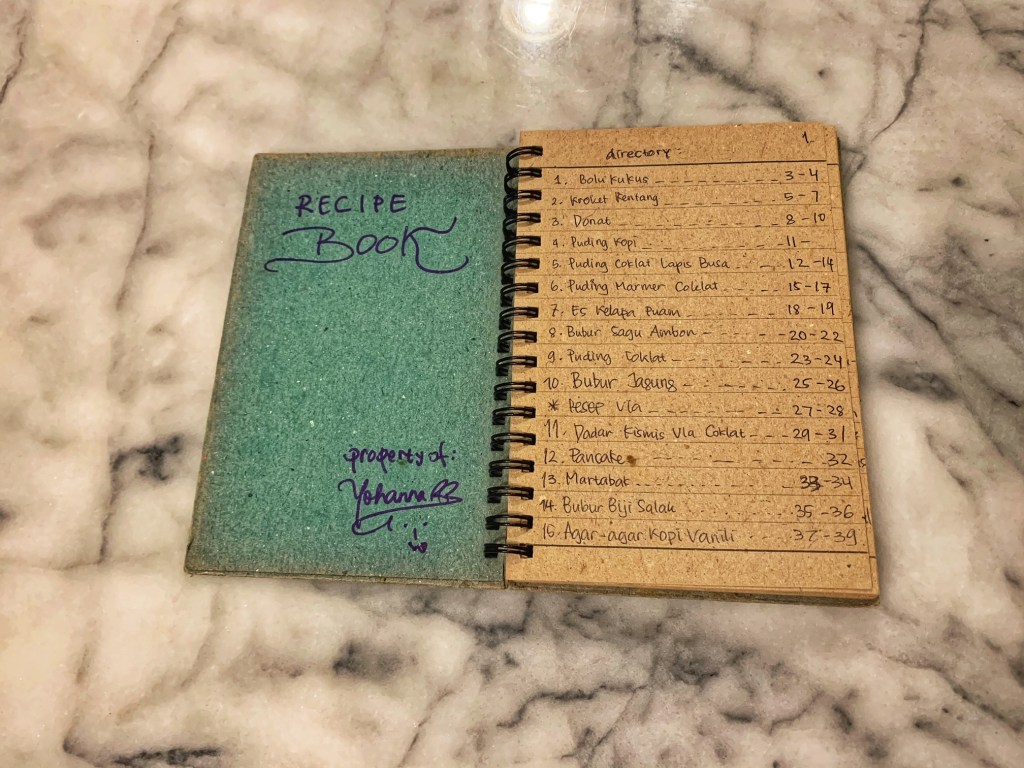 RECIPE
BOOK
property of:
Yohanna RB
1
directory:
1. Bolu kukus 3-4
2. Kroket Kentang 5-7
3. Donat 8-10
4. Puding Kopi 11-
5. Puding Coklat Lapis Busa 12-14
6. Puding Marmer Coklat 15-17
7. Es Kelapa Puam 18-19
8. Bubur Sagu Ambon 20-22
9. Puding Coklat 23-24
10. Bubur Jagung 25-26
* Resep Vla 27-28
11. Dadar Kismis Vla Coklat 29-31
12. Pancake 32
13. Martabak 33-34
14. Bubur Biji Salak 35-36
15. Agar-agar Kopi Vanili 37-39